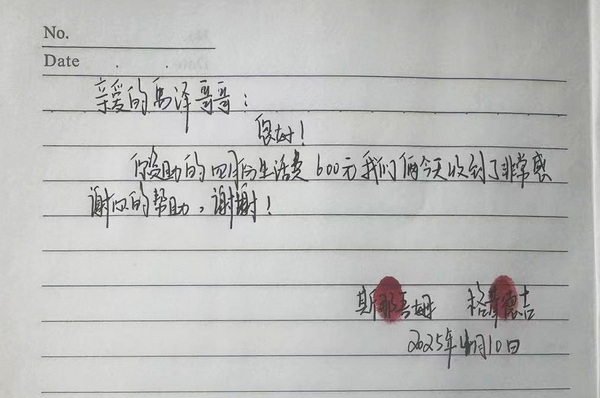 No.
Date . .
亲爱的马泽哥哥：
您好！
你资助的四月份生活费600元我们俩今天收到了非常感
谢你的帮助，谢谢！
斯那吾姆 格茸德吉
2025年4月10日